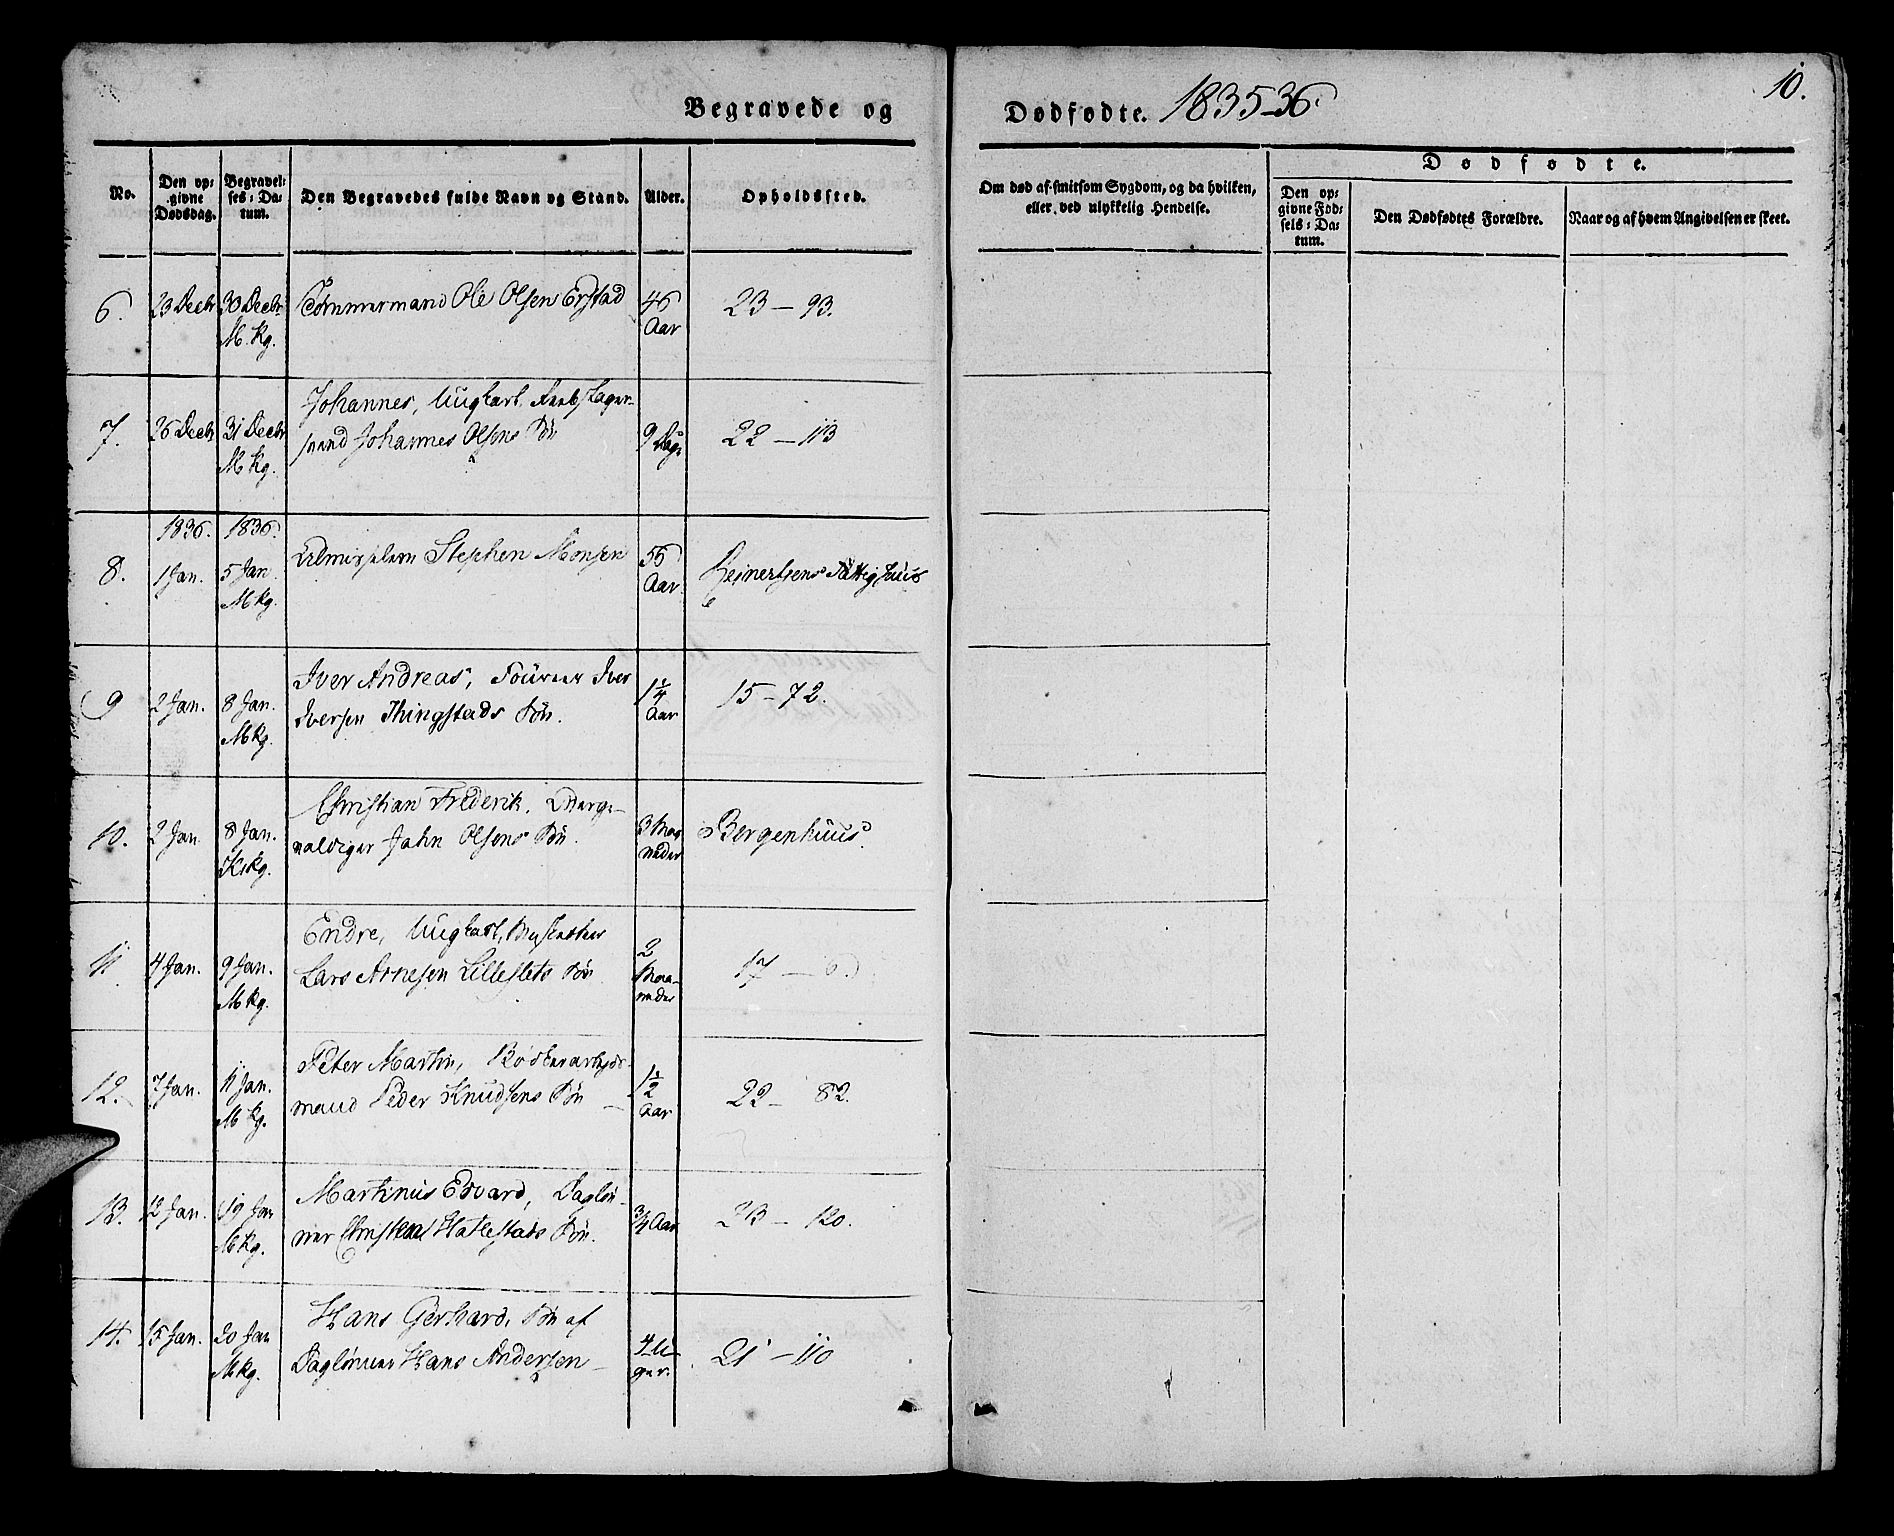 Begravede og
Dødfødte. 1835-36.
10.
No.
Den op-
givne
Dødsdag.
Begravel-
ses-Da-
tum.
Den Begravedes fulde Navn og Stand.
Alder.
Opholdssted.
Om død af smitsom Sygdom, og da hvilken,
eller ved ulykkelig Hendelse.
Dødfødte.
Den op-
givne Fød-
sels-Da-
tum.
Den Dødfødtes Forældre.
Naar og af hvem Angivelsen er skeet.
6. 23 Decbr 30 Decbr Tømmermand Ole Olsen Erstad 46 23 - 93.
M. Kg. Aar
Johannes, Ungkarl
7. 26 Decbr 31 Decbr mand Johannes Olsens Søn 9 Dage 22 - 113
M Kg.
1836. 1836.
8. 1 Jan. 5 Jan. Almisselem Stephen Monsen 56 Aar
M Kg.
Iver Andreas, Iver
9 2 Jan. 8 Jan. Iversen Thingstads Søn. 1¼ Aar 15 - 72.
M Kg.
Christian Frederik,
10. 2 Jan 8 Jan. valdiger Jahn Olsens Søn. 3 Maa- Bergenhuus.
Kskg. neder
Endre, Ungkarl,
11 4 Jan. 9 Jan. Lars Arnesen Lilleslets Søn 2 Maa- 17 -
M Kg. neder
Peter Martin, Bødkerarbejds-
12. 7 Jan. 11 Jan. mand Peder Knudsens Søn - ½ Aar 22 - 82.
M Kg.
Martinus Edvard, Dagløn-
13. 12 Jan. 19 Jan ner Christen Hatlestads Søn. ¾ Aar 23 - 120.
M Kg.
Hans Gerhard, Søn af
14. 15 Jan. 20 Jan Daglønner Hans Andersen - 4 U- 21 - 110
M Kg. ger.